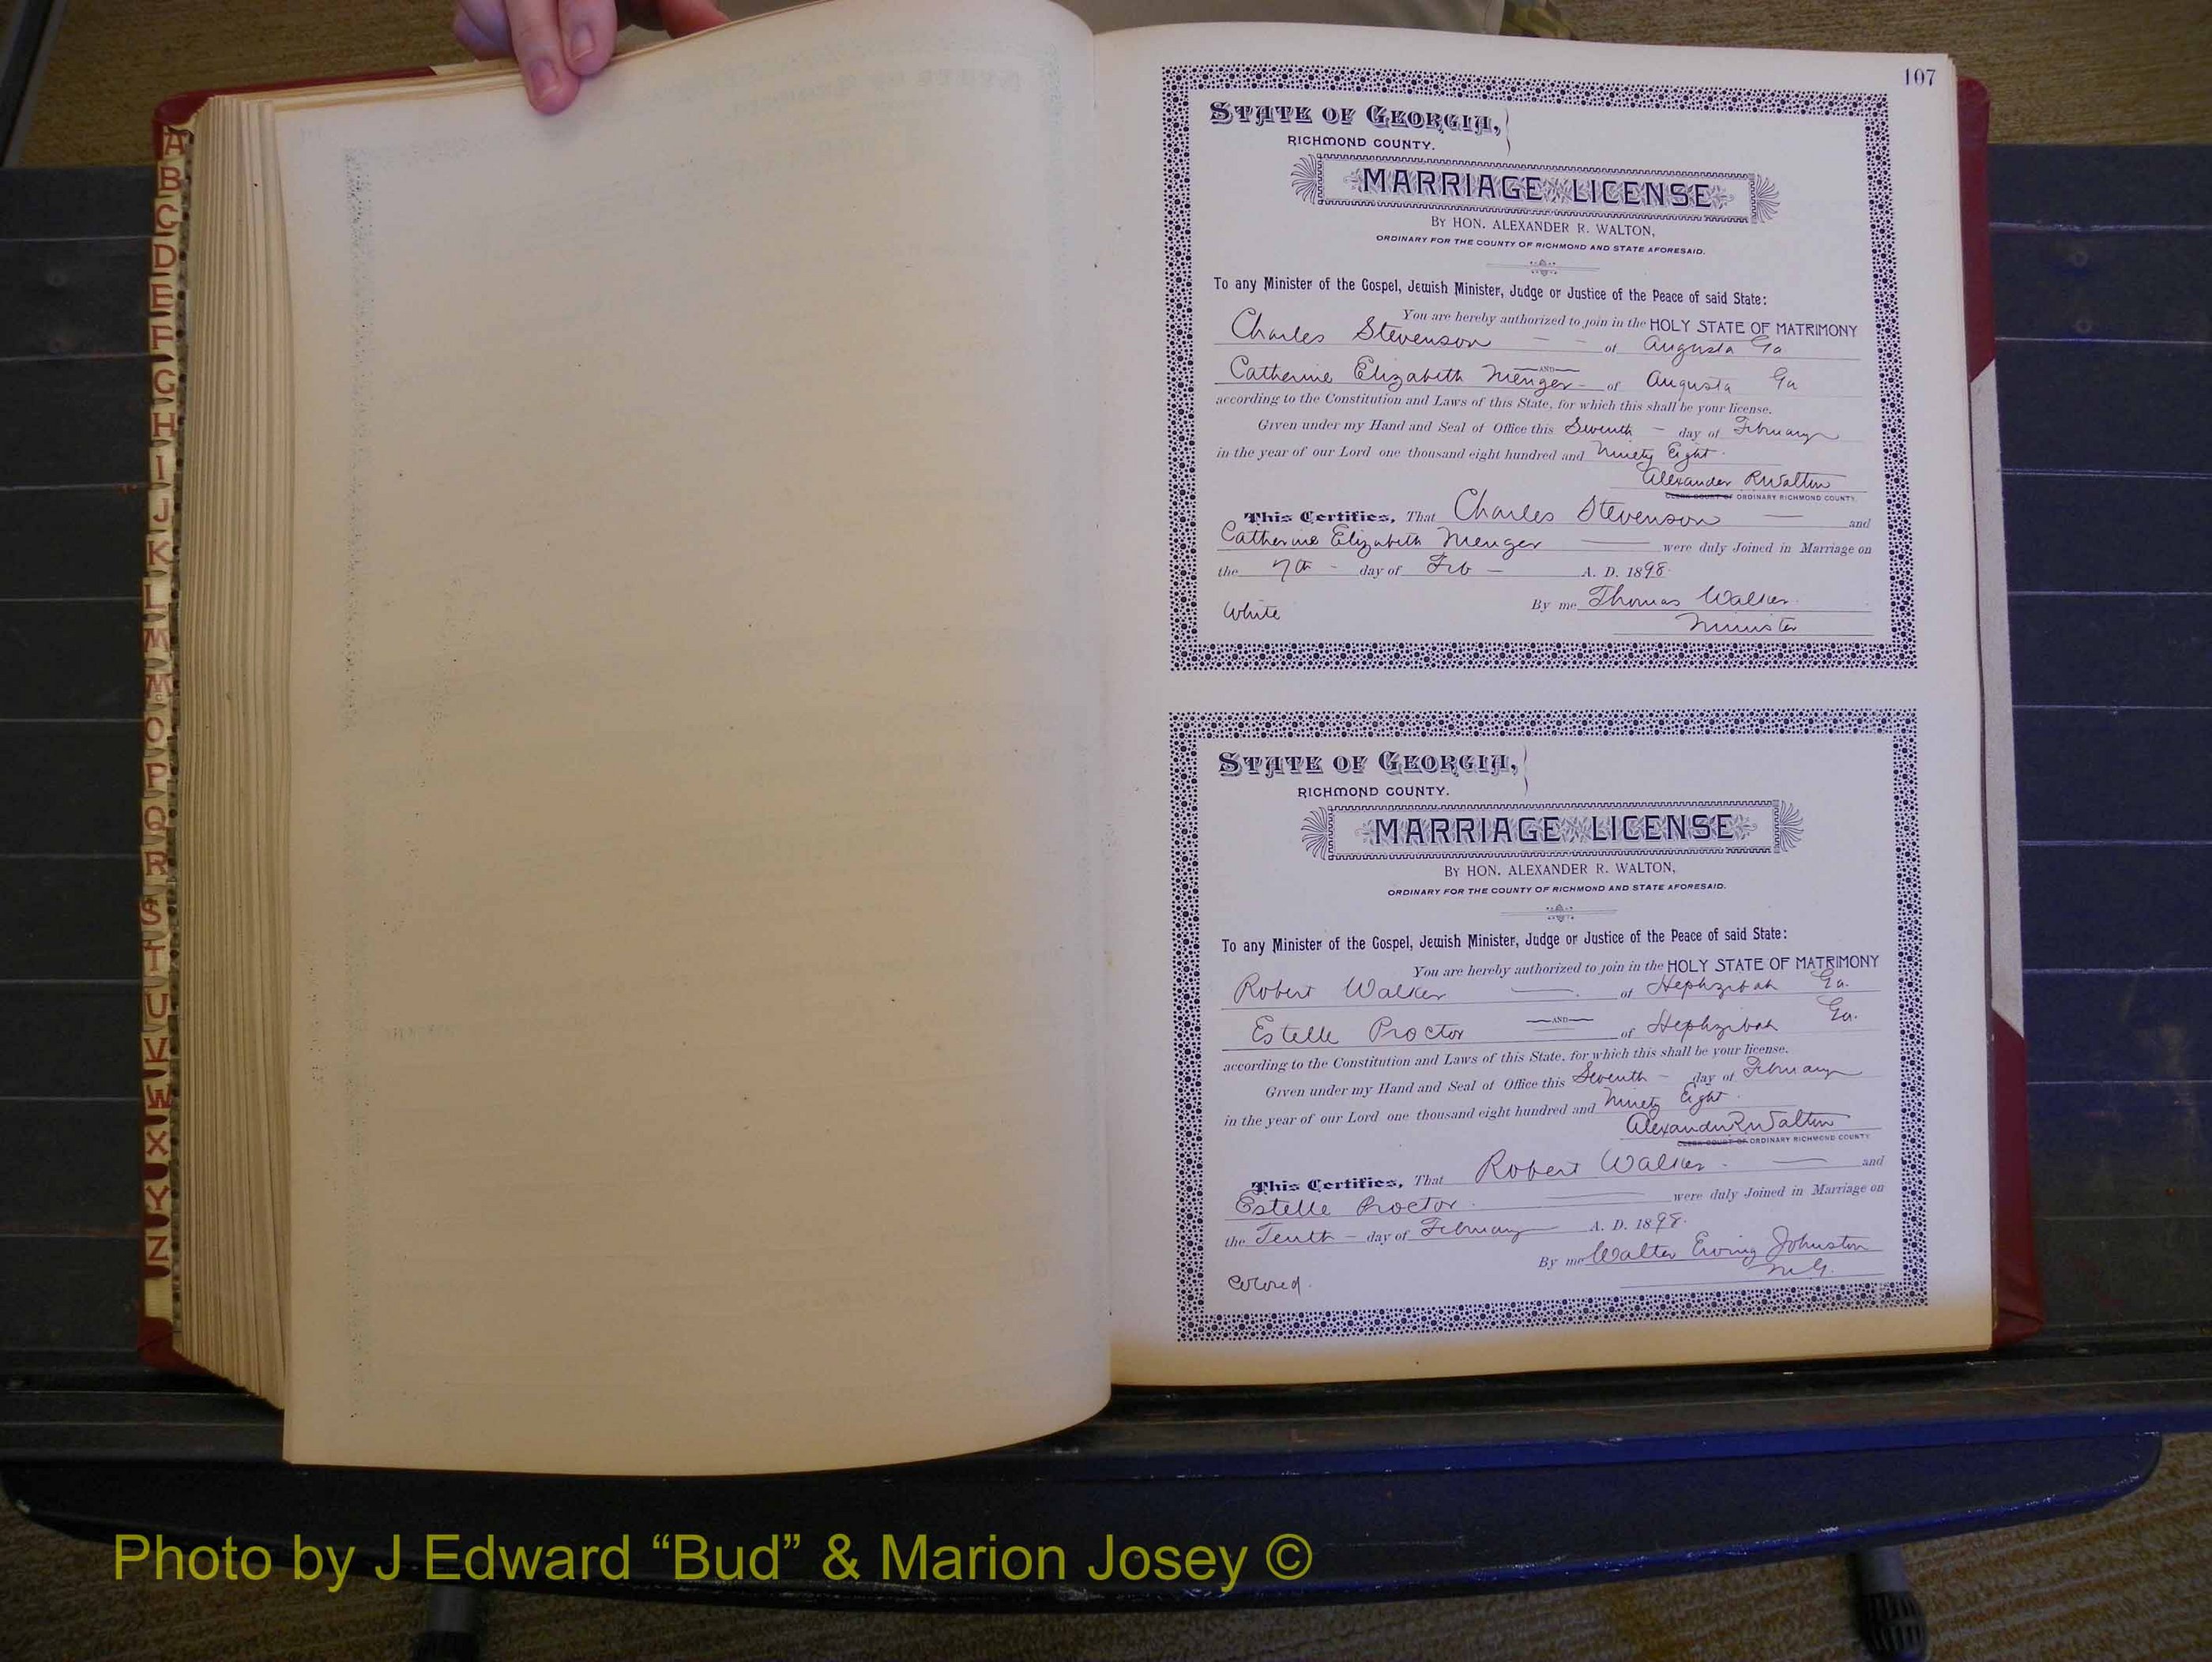 A
B
C
D
E
F
G
H
I
J
K
L
M
M
O
P
Q
R
S
T
U
V
W
X
Y
Z
107
STATE OF GEORGIA,
RICHMOND COUNTY.
MARRIAGE LICENSE
BY HON. ALEXANDER R. WALTON,
ORDINARY FOR THE COUNTY OF RICHMOND AND STATE AFORESAID.
To any Minister of the Gospel, Jewish Minister, Judge or Justice of the Peace of said State:
You are hereby authorized to join in the HOLY STATE OF MATRIMONY
Charles Stevenson - - of Augusta Ga
AND
Catherine Elizabeth Menger - of Augusta Ga
according to the Constitution and Laws of this State, for which this shall be your license.
Given under my Hand and Seal of Office this Seventh - day of February
in the year of our Lord one thousand eight hundred and Ninety Eight.
Alexander R Walton
CLERK COURT OF ORDINARY RICHMOND COUNTY.
This Certifies, That Charles Stevenson — and
Catherine Elizabeth Menger — were duly Joined in Marriage on
the 7th - day of Feb - A. D. 1898.
White By me Thomas Walker.
Minister
STATE OF GEORGIA,
RICHMOND COUNTY.
MARRIAGE LICENSE
BY HON. ALEXANDER R. WALTON,
ORDINARY FOR THE COUNTY OF RICHMOND AND STATE AFORESAID.
To any Minister of the Gospel, Jewish Minister, Judge or Justice of the Peace of said State:
You are hereby authorized to join in the HOLY STATE OF MATRIMONY
Robert Walker — of Hephzibah Ga.
AND
Estelle Proctor of Hephzibah Ga.
according to the Constitution and Laws of this State, for which this shall be your license.
Given under my Hand and Seal of Office this Seventh - day of February
in the year of our Lord one thousand eight hundred and Ninety Eight.
Alexander R Walton
CLERK COURT OF ORDINARY RICHMOND COUNTY
This Certifies, That Robert Walker. — and
Estelle Proctor. — were duly Joined in Marriage on
the Tenth - day of February — A. D. 1898.
By me Walter Ewing Johnston
Colored. M.G.
Photo by J Edward “Bud” & Marion Josey ©